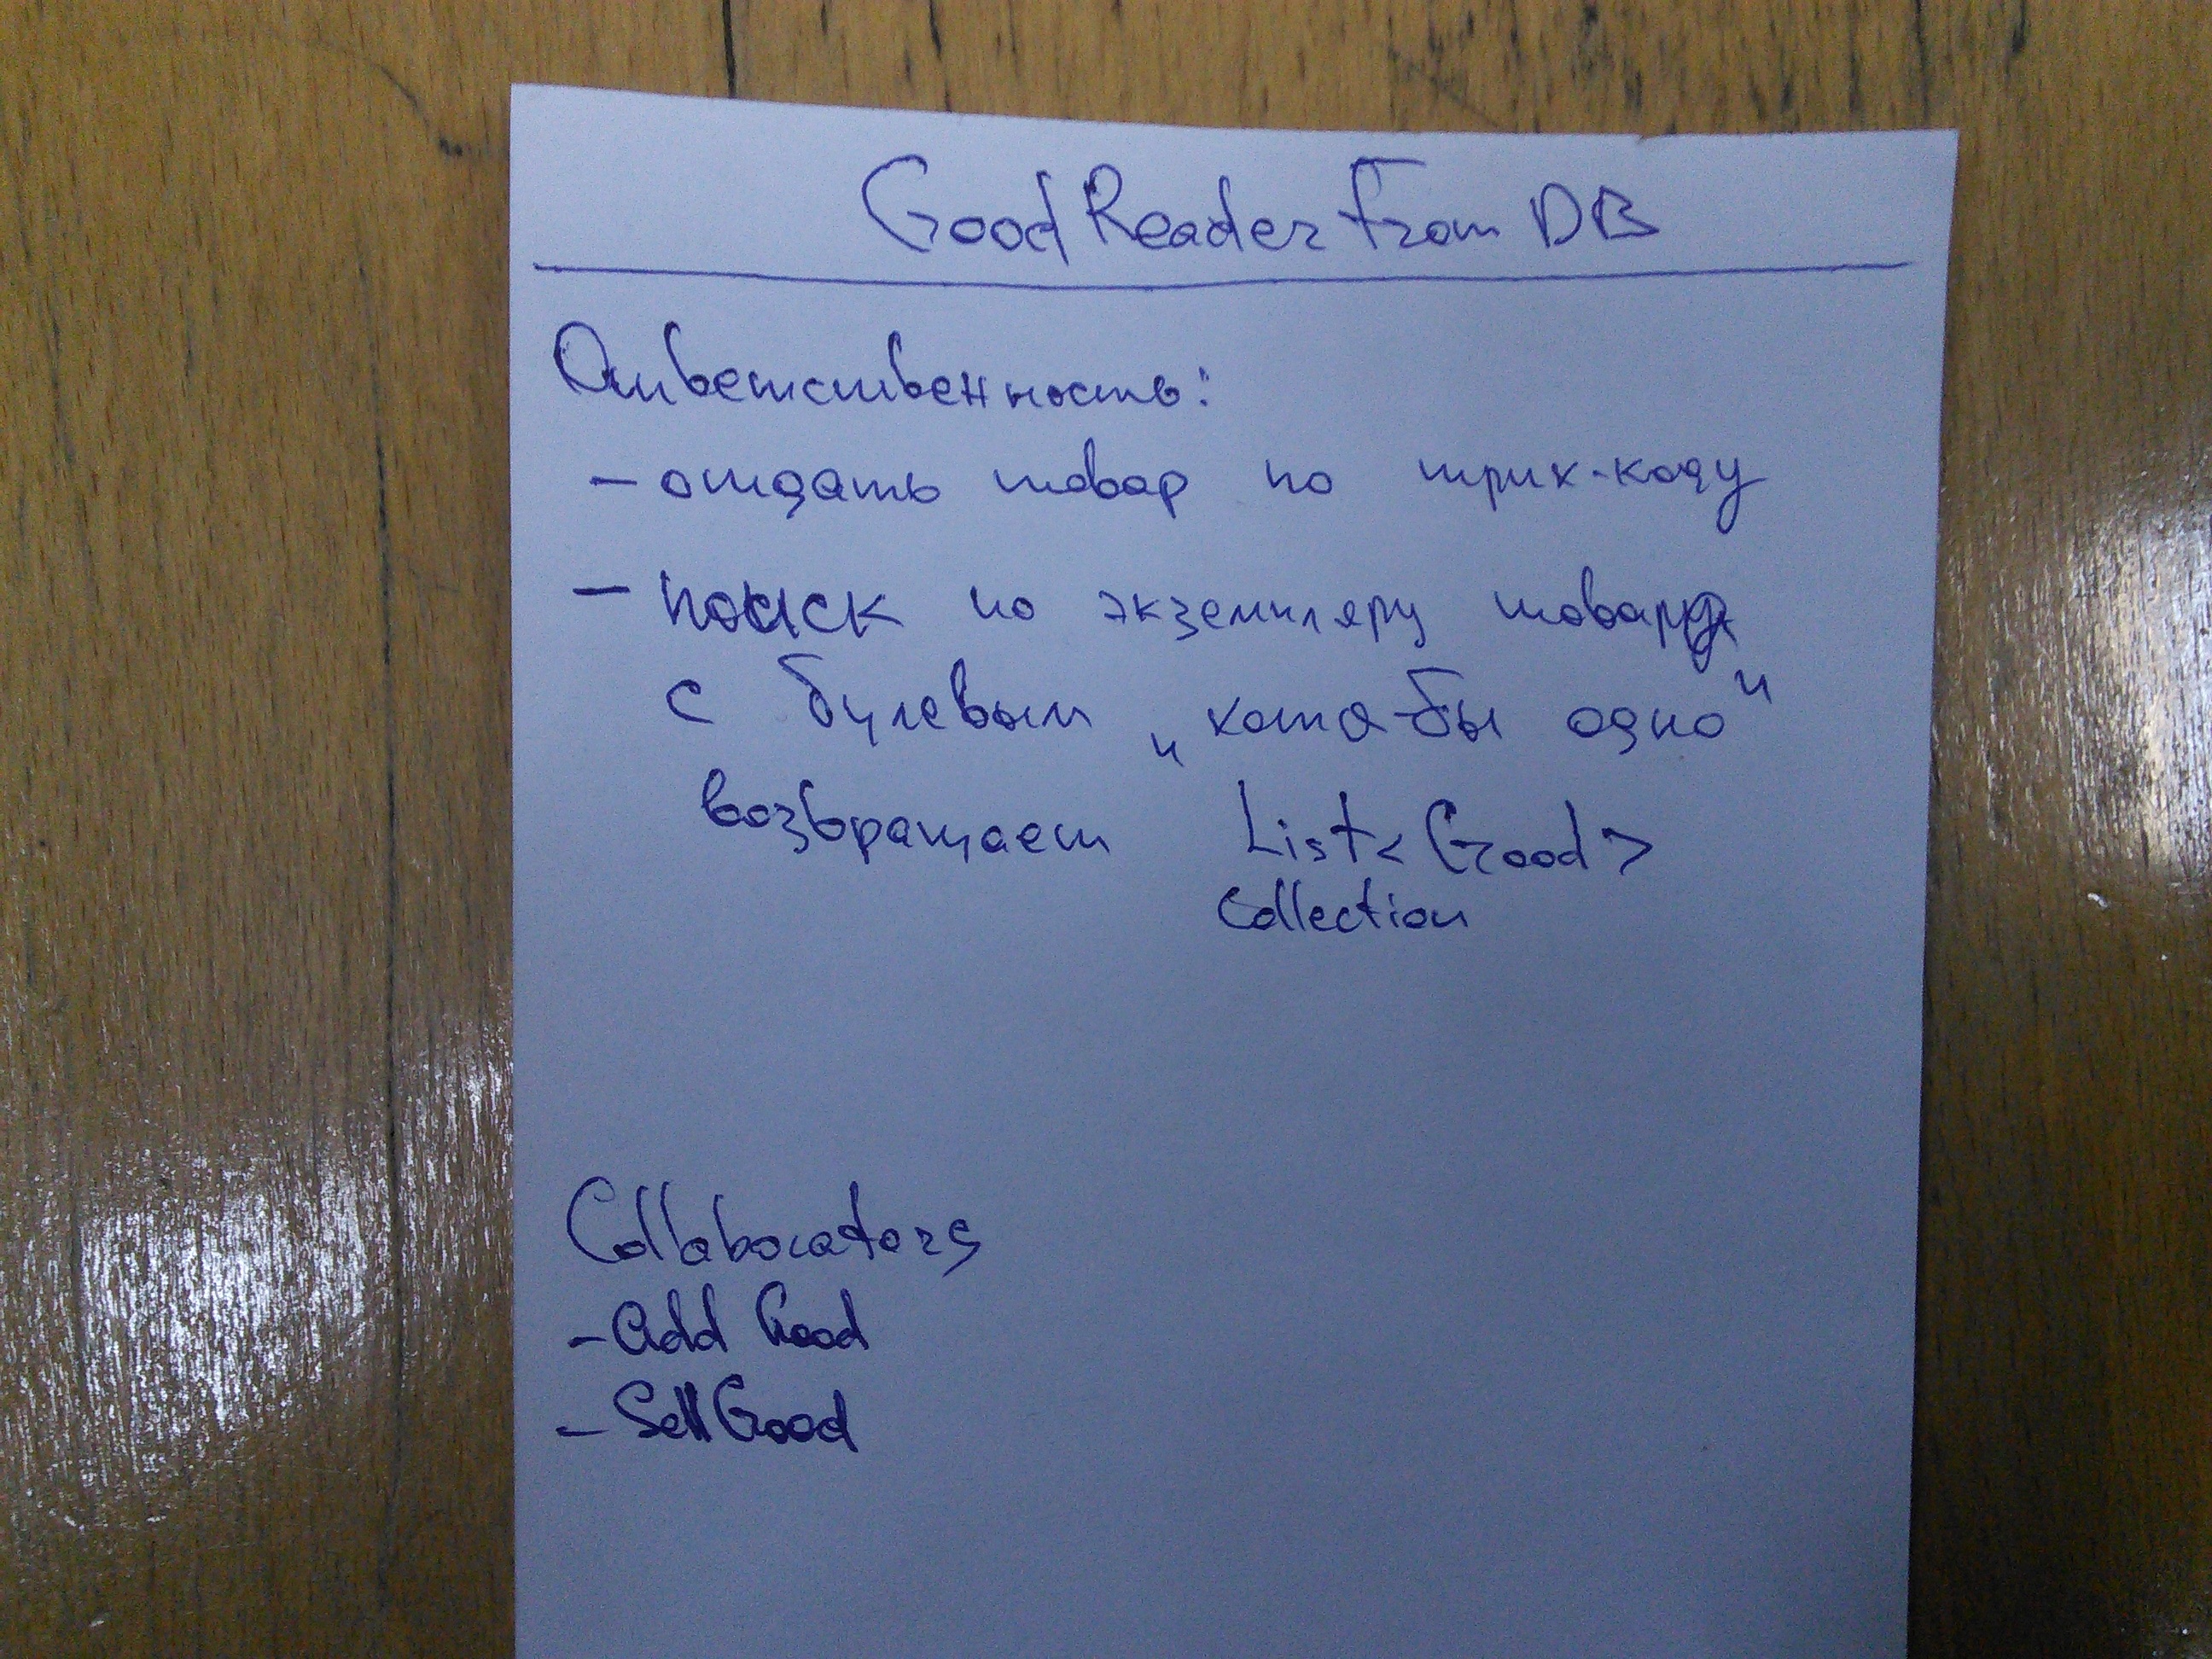 GoodReaderFromDB
Ответственность:
- отдать товар по штрих-коду
- поиск по экземпляру товара
с булевым „хотя-бы одно"
возвращает List<Good>
Collection
Collaborators
- Add Good
- SellGood